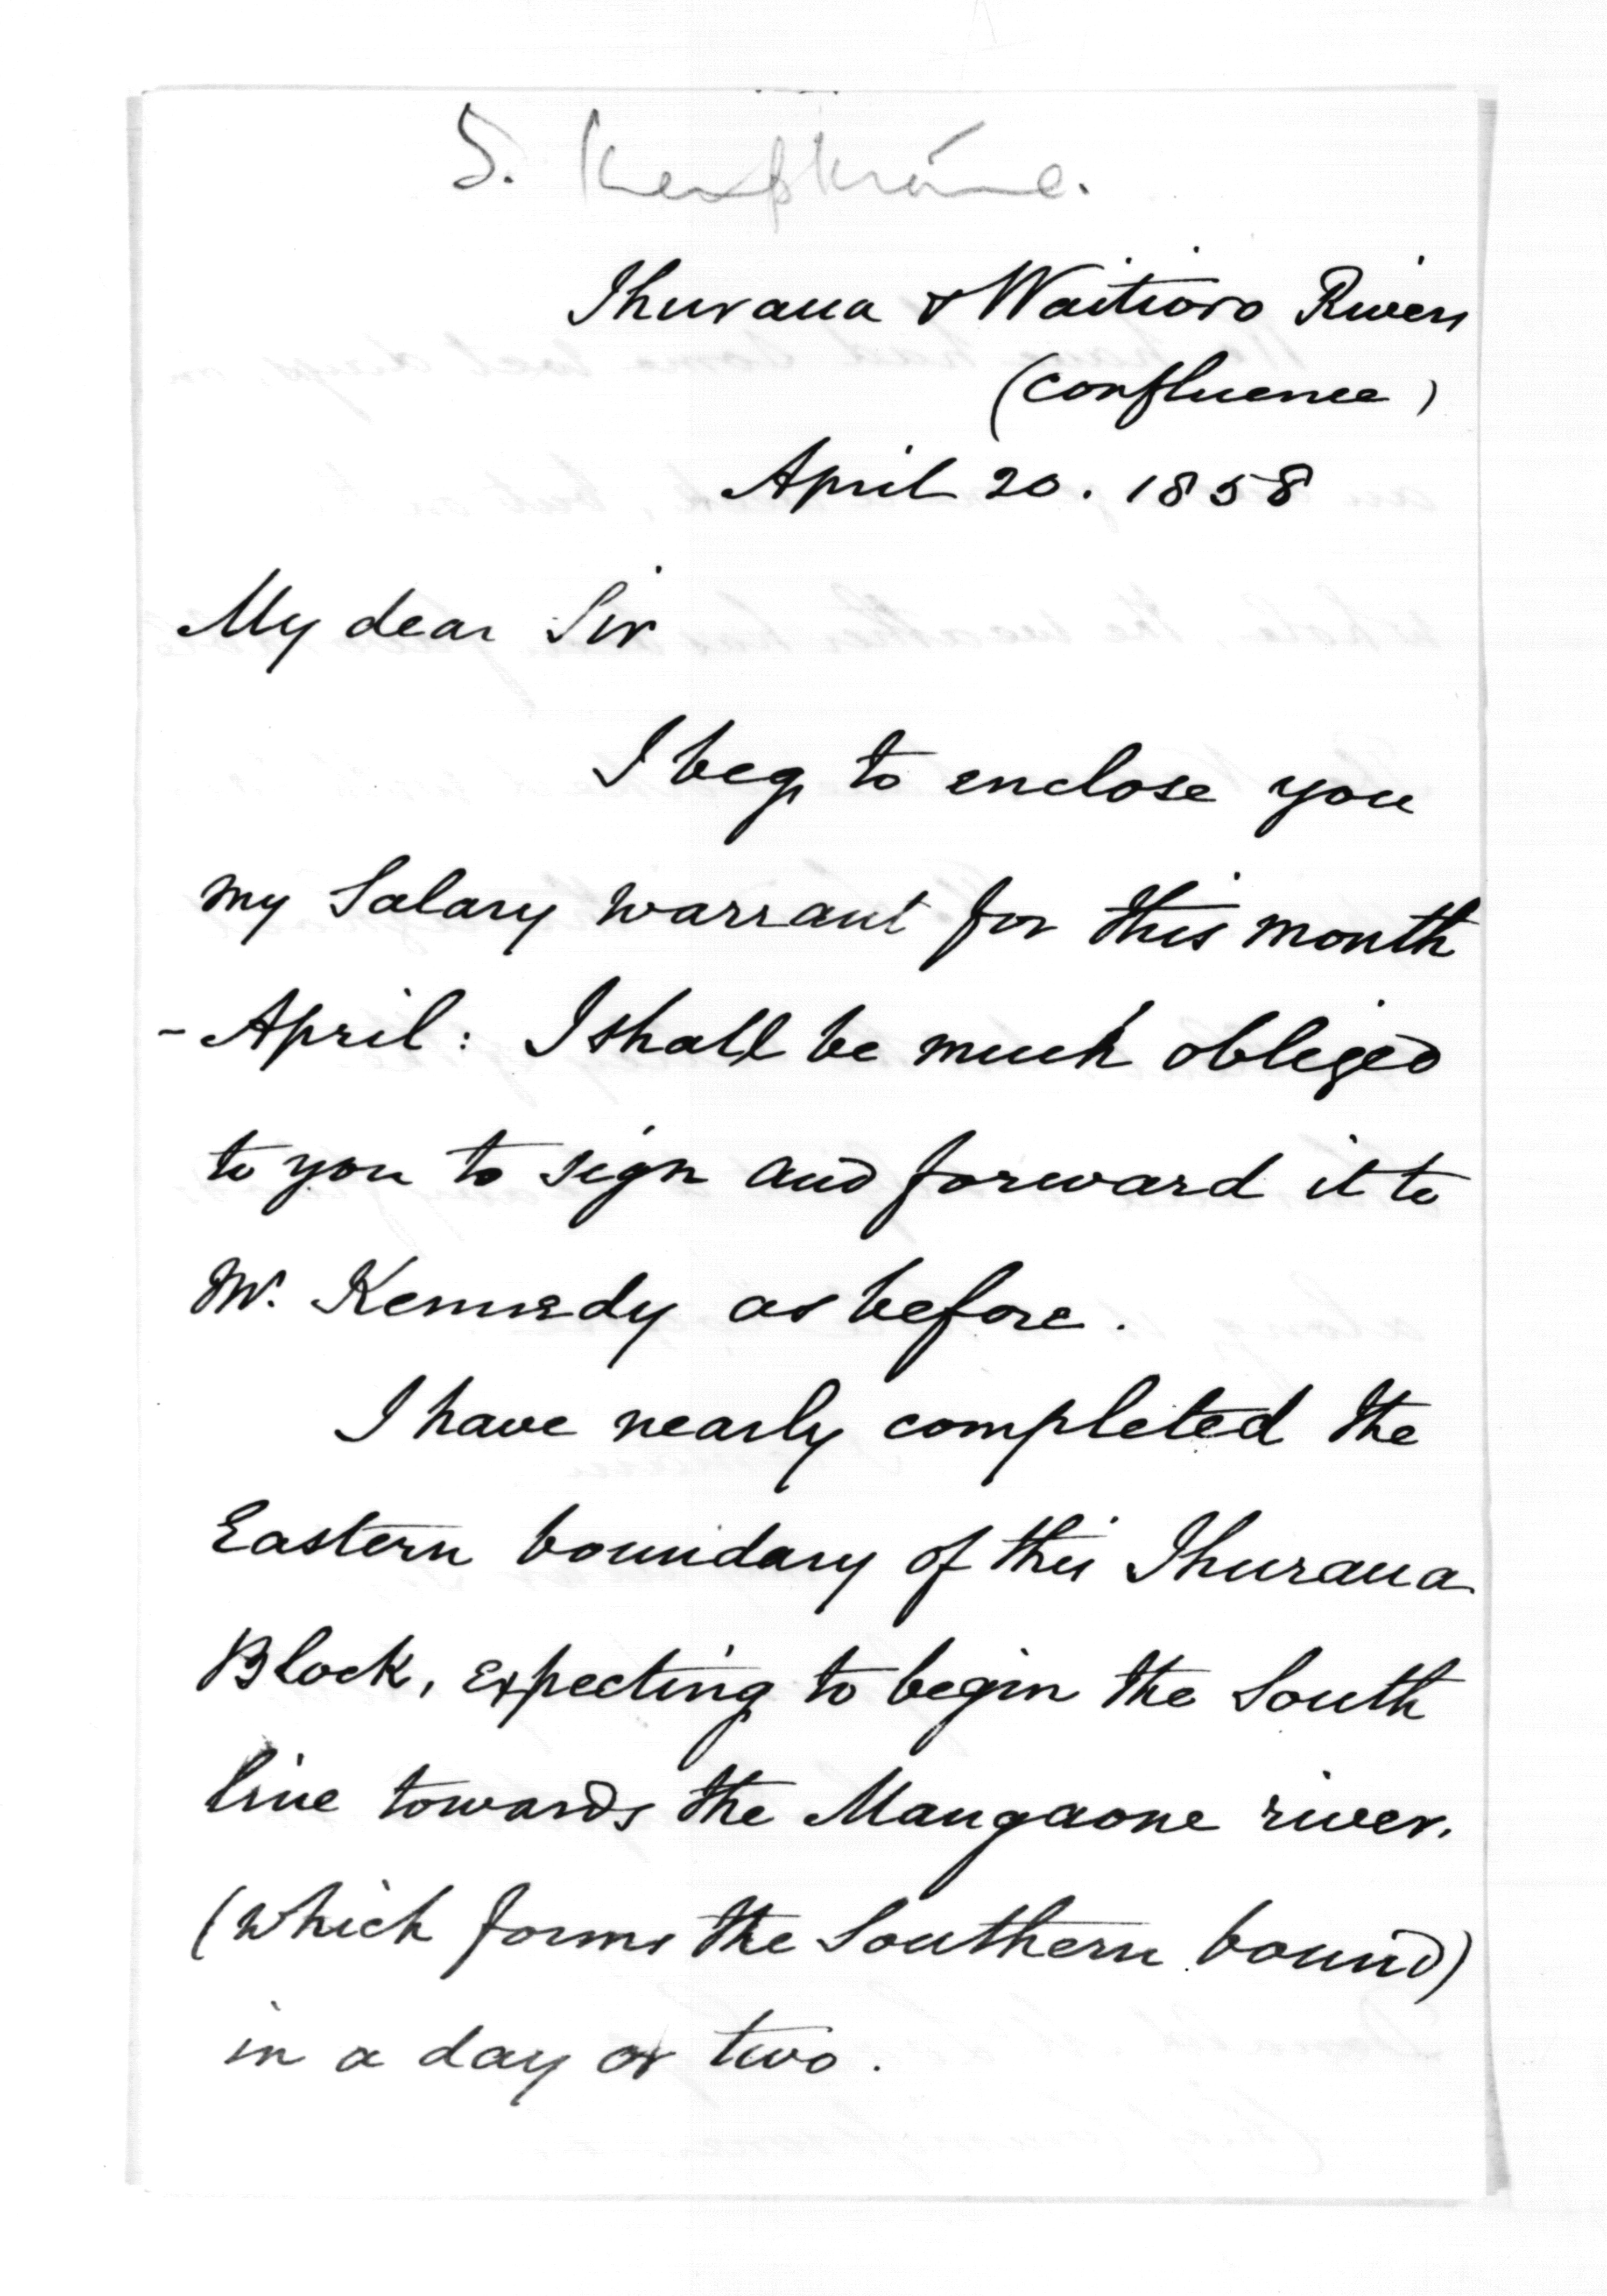 S.
Ihuraua & Waitioro Rivers
(confluence)
April 20. 1858
My dear Sir
I beg to enclose you
my Salary warrant for this month
- April: I shall be much obliged
to you to sign and forward it to
Mr. Kennedy as before.
I have nearly completed the
Eastern boundary of this Ihuraua
Block, expecting to begin the South
line towards the Mangaone river.
(which forms the Southern bound)
in a day or two.